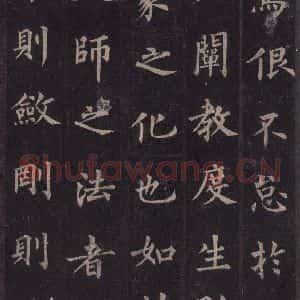 不怠於
闡教度生
家之化也如
師之法者
則斂剛則
Shufawang.CN